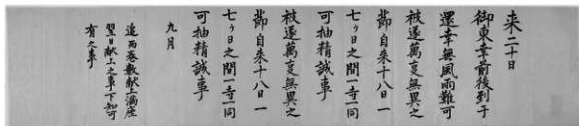 来二十日
御東幸前後到于
還幸無風雨難可
被遂萬変無異之
節自来十八日一
七ヶ日之間一寺一同
可抽精誠事
被遂萬変無異之
節自来十八日一
七ヶ日之間一寺一同
可抽精誠事
九月
追而巻数献満座
翌日献上之事下知可
有之事